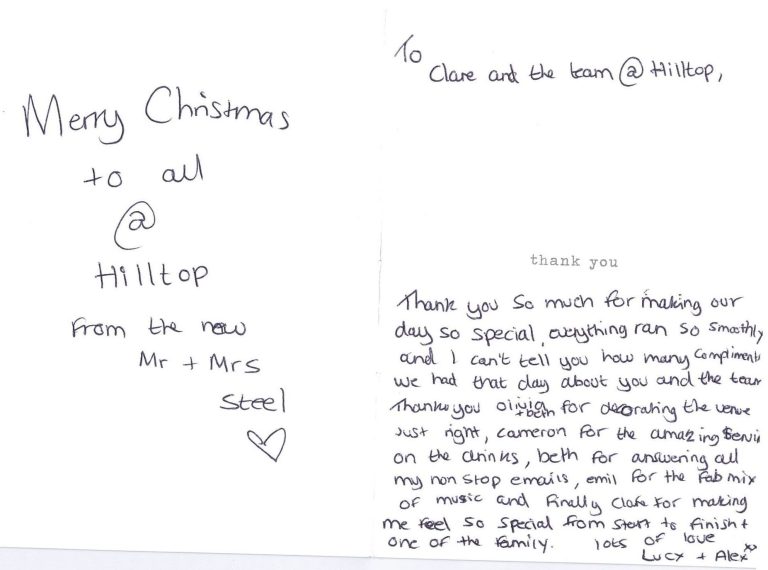 Merry Christmas
to all
@
Hilltop
From the new
Mr + Mrs
Steel
To
Clare and the team @ Hilltop,
thank you
Thank you so much for making our
day so special, everything ran so smoothly
and I can't tell you how many compliment
we had that day about you and the team
Thank you olivia + beth for decorating the venue
just right, cameron for the amazing servi
on the drinks, beth for answering all
my non stop emails, emil for the fab mix
of music and finally Clare for making
me feel so special from start to finish +
one of the family. lots of love
Lucy + Alex xx